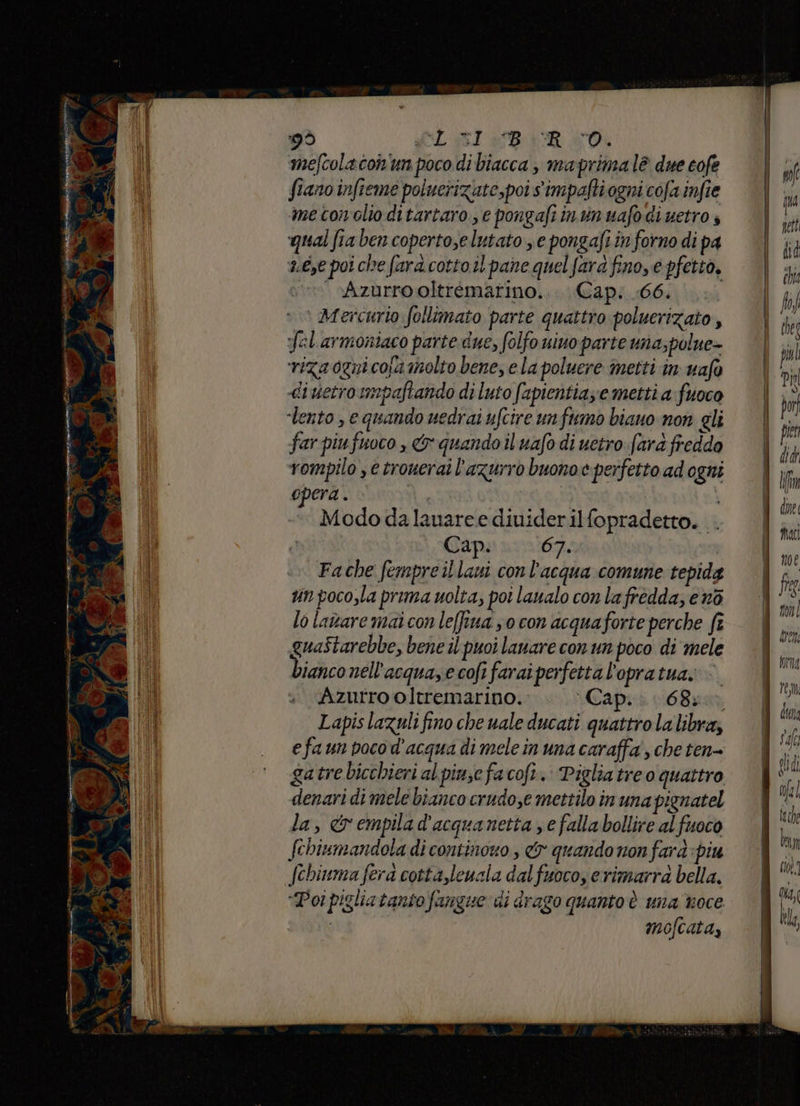 90 L I B R O.
meſcola con'un poco di biacca, ma prima lē due coſe
ſiano inſieme poluerizate, poi s'impaſti ogni coſa inſie
me con olio di tartaro, e pongaſi in un uaſo di uetro,
qual ſia ben coperto, e lutato, e pongaſi in forno di pa
ne, e poi che ſarà cotto il pane quel ſarà fino, e pfetto.
Azurro oltremarino. Cap. 66.
Mercurio ſollimato parte quattro poluerizato,
ſal armoniaco parte due, ſolfo uiuo parte una, polue-
riza ogni coſa molto bene, e la poluere metti in uaſo
di uetro impaſtando di luto ſapientia, e metti a fuoco
lento, e quando uedrai uſcire un fumo biauo non gli
far piu fuoco, & quando il uaſo di uetro ſarà freddo
rompilo, e trouerai l'azurro buono e perfetto ad ogni
opera.
Modo da lauare e diuider il ſopradetto.
Cap. 67.
Fa che ſempre il laui con l'acqua comune tepida
un poco, la prima uolta, poi laualo con la fredda, e nō
lo lauare mai con leſſiua, o con acqua forte perche ſi
guaſtarebbe, bene il puoi lauare con un poco di mele
bianco nell'acqua, e coſi farai perfetta l'opra tua.
Azurro oltremarino. Cap. 68.
Lapis lazuli fino che uale ducati quattro la libra,
e fa un poco d'acqua di mele in una caraffa, che ten-
ga tre bicchieri al piu, e fa coſi. Piglia tre o quattro
denari di mele bianco crudo, e mettilo in una pignatel
la, & empila d'acqua netta, e falla bollire al fuoco
ſchiumandola di continouo, & quando non farà piu
ſchiuma ſerà cotta, leuala dal fuoco, e rimarrà bella.
Poi piglia tanto ſangue di drago quanto è una noce
moſcata,